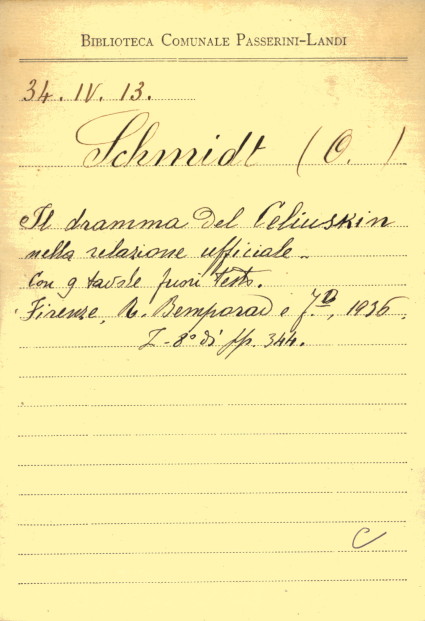 BIBLIOTECA COMUNALE PASSERINI-LANDI
34. IV. 13.
Schmidt (O.)
Il dramma del Celiuskin
nella relazione ufficiale.
Con 9 tavole fuori testo.
Firenze, R. Bemporad e f.º, 1936.
8º di pp. 344.
C